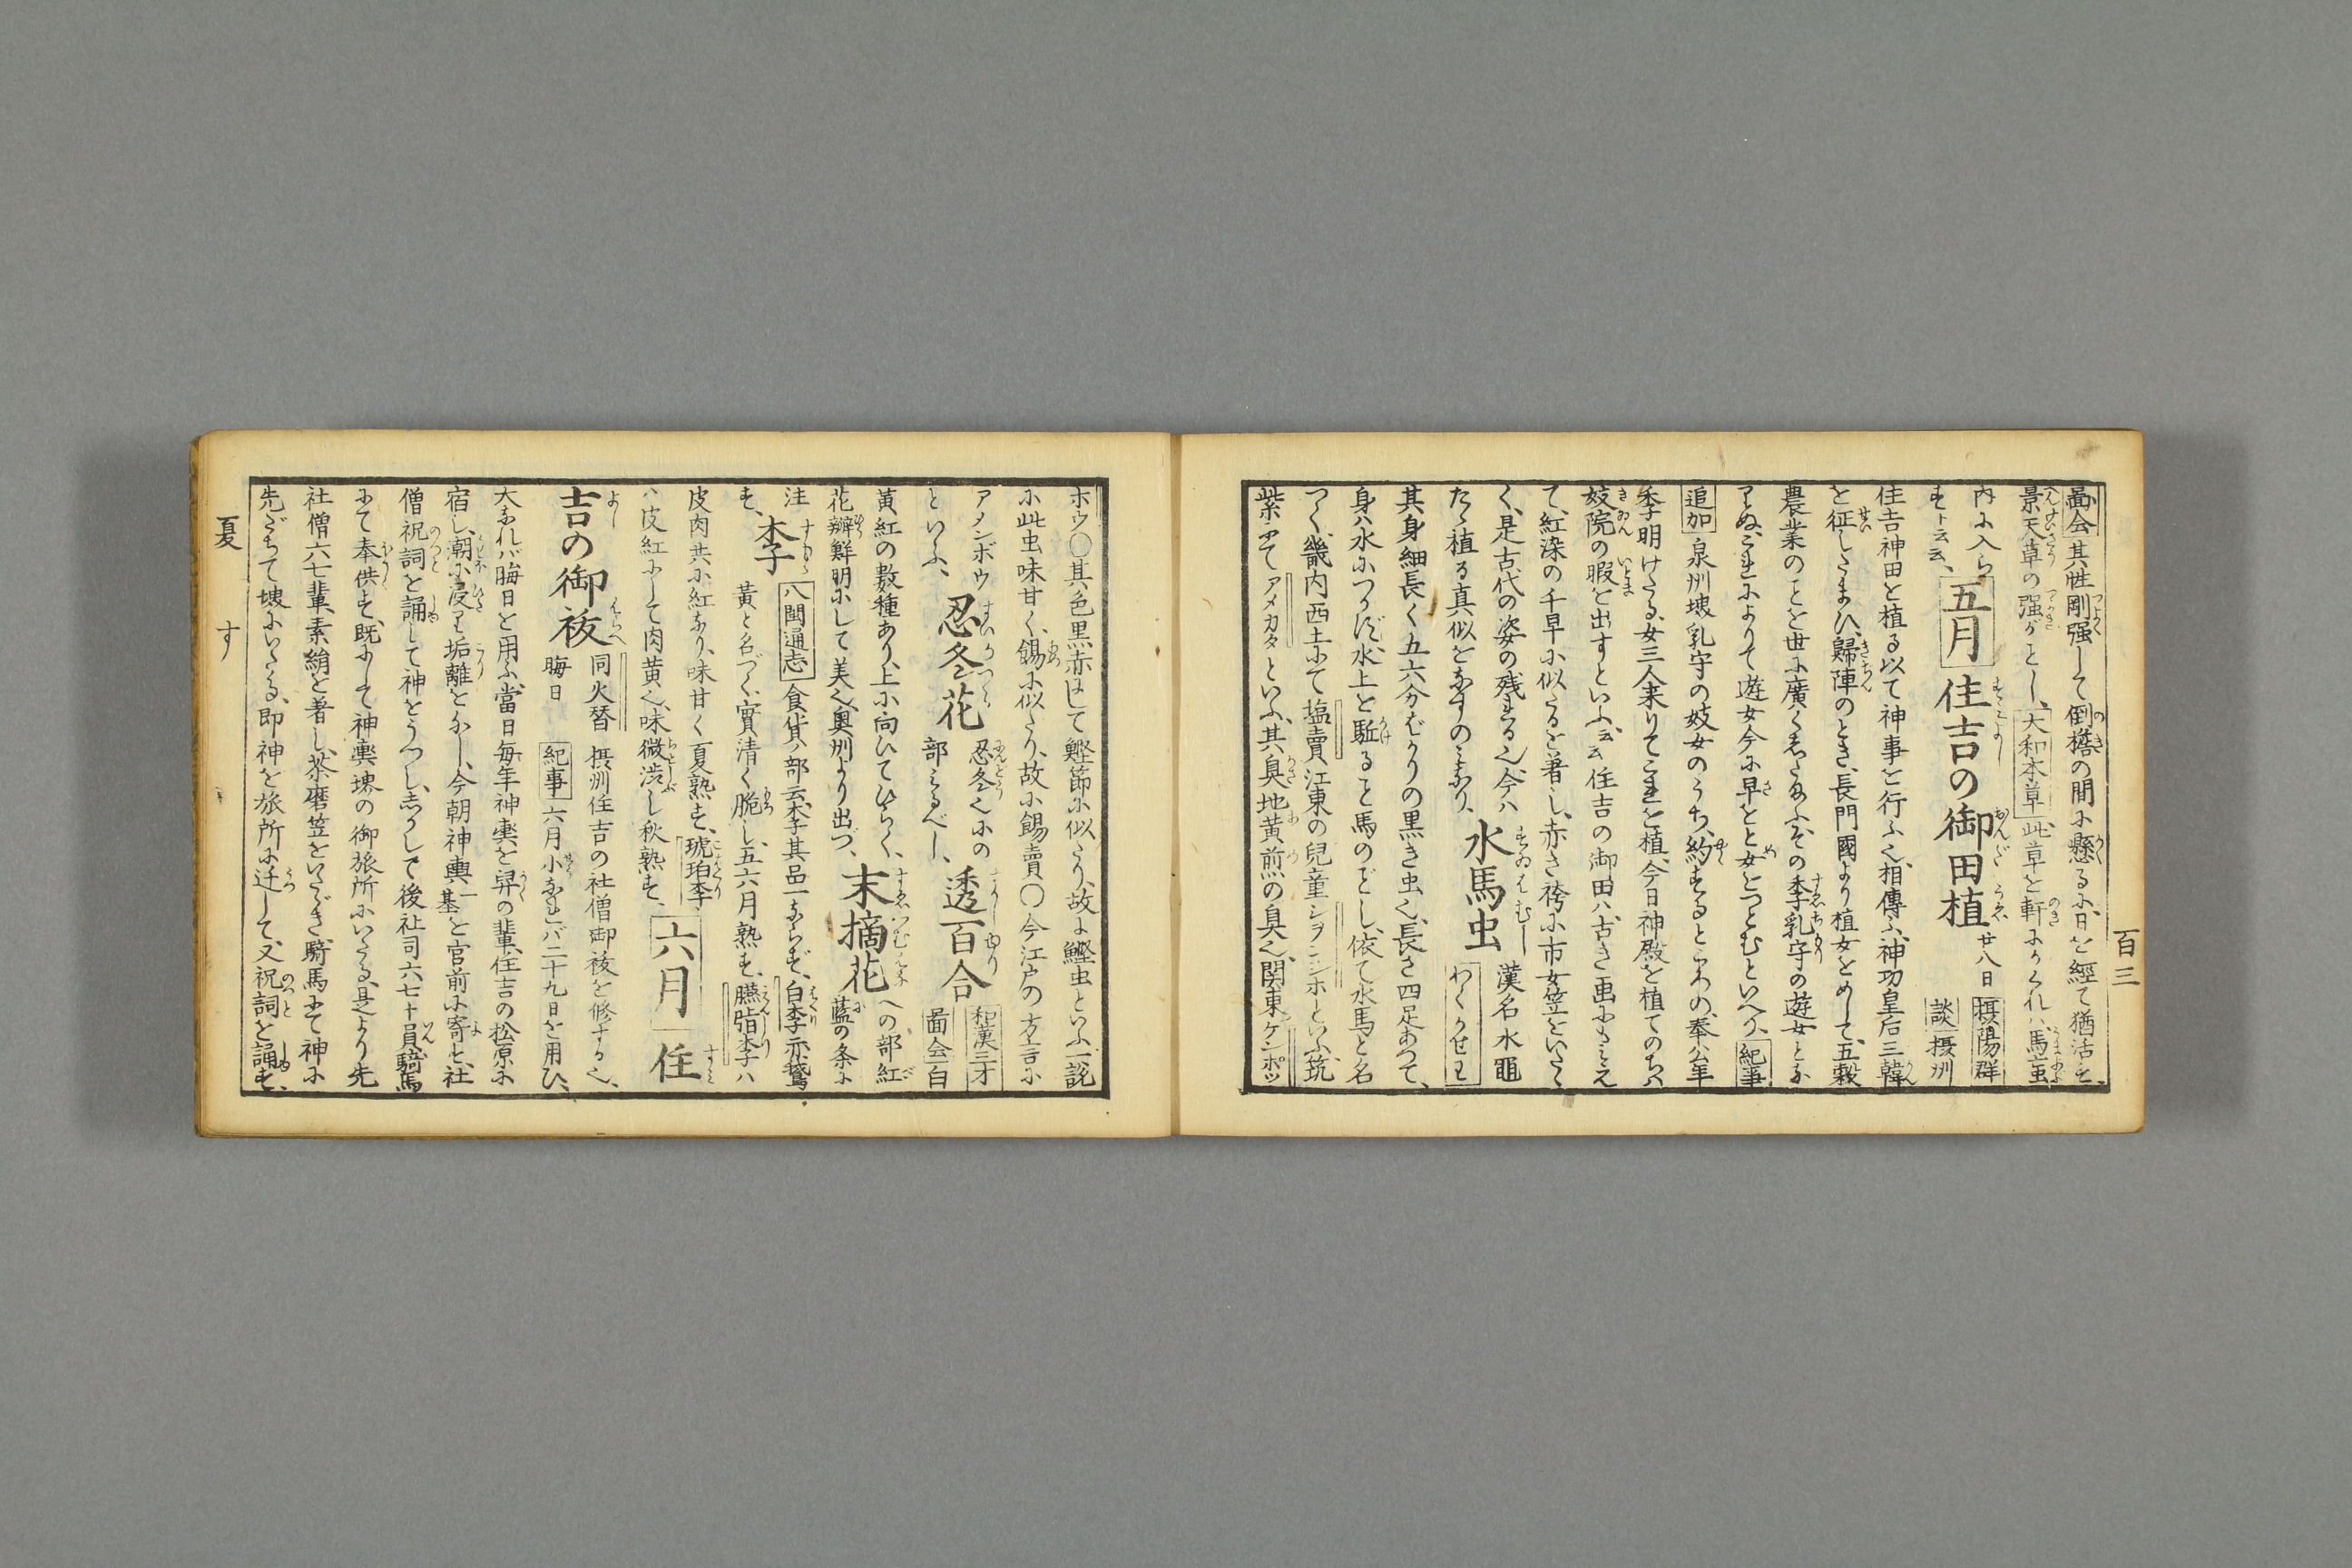 百三
畵会其性剛强して倒檐の間に懸るに、日を經て猶活す、
景天草の强がごとし、大和本草此草を軒にかくれハ、馬䖟
内に入らずト云云、
五月
住吉の御田植
廿八日
摂陽群談
摂州
住吉神田を植る以て神事を行ふ也、相傳ふ、神功皇后三韓
を征したまひ、歸陣のとき、長門國より植女をめして、五穀
農業のことを世に廣くしたまふ、その季乳守の遊女とな
りぬ、これによりて遊女今に早乙女をつとむといへり、紀事
追加泉州堺乳守の妓女のうち、約するところの、奉公年
季明けたる、女三人来りてこれを植、今日神殿を植てのち、
妓院の暇を出すといふ、云云住吉の御田ハ、古き画にもみえ
て、紅染の千早に似たるを著し、赤き袴に市女笠をいたゞ
く、是古代の姿の残れる也、今ハ
たゞ植る真似をなすのみなり、
水馬虫
漢名水黽
わくかせわ
其身細長く五六分ばかりの黒き虫也、長き四足あつて、
身ハ水につかず、水上を駈ること馬のごとし、依て水馬と名
つく、畿内西土にて塩賣、江東の兒童シヲニンボといふ、筑
紫にてアメカタといふ、其臭地黄煎の臭也、関東ケンポッ
ホウ〇其色黒赤にして鰹節に似たり、故に鰹虫といふ、一説
に此虫味甘く、餳に似たり、故に餳賣〇今江戸の方言に
アメンボウ
といふ、
忍冬花
忍冬也にの
部みるべし、
透百合
和漢三才
啚会白
黄紅の数種あり、上に向ひてひらく、
花瓣鮮明にして美也、奥州より出づ、
末摘花
への部紅
藍の条に
注
す、
李
八閩通志食貨ノ部云、李其品一ならず、白李示鵞
黄と名づく、實清く脆し、五六月熟す、臙脂李ハ
皮肉共に紅なり、味甘く夏熟す、琥珀李
ハ皮紅にして肉黄也、味微渋し秋熟す、
六月
住
吉の御祓
同火替
晦日
摂州住吉の社僧御祓を修する也、
紀事六月小なれバ二十九日を用ひ、
大なれバ晦日を用ふ、當日毎年神輿を舁の輩、住吉の松原に
宿し、潮に浸り垢離をなし、今朝神輿一基を宮前に寄と、社
僧祝詞を誦して神をうつし、しかして後社司六七十員騎馬
にて奉供す、既にして神輿堺の御旅所にいたる、是より先
社僧六七輩、素絹を著し、茶磨笠をいたゞき、騎馬にて神に
先だちて堺にいたる、即神を旅所に迁して、又祝詞を誦す、
夏
す